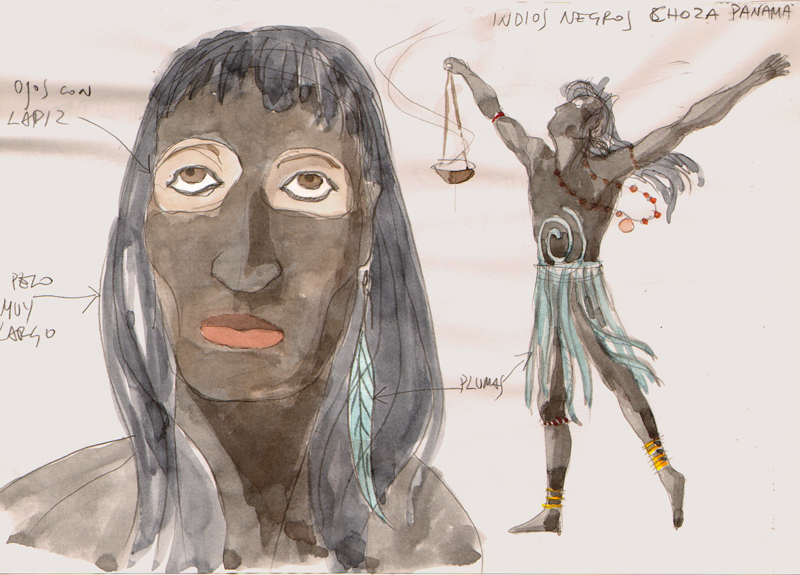 INDIOS NEGROS CHOZA PANAMÁ
OJOS CON
LÁPIZ
PELO
MUY
LARGO
PLUMAS